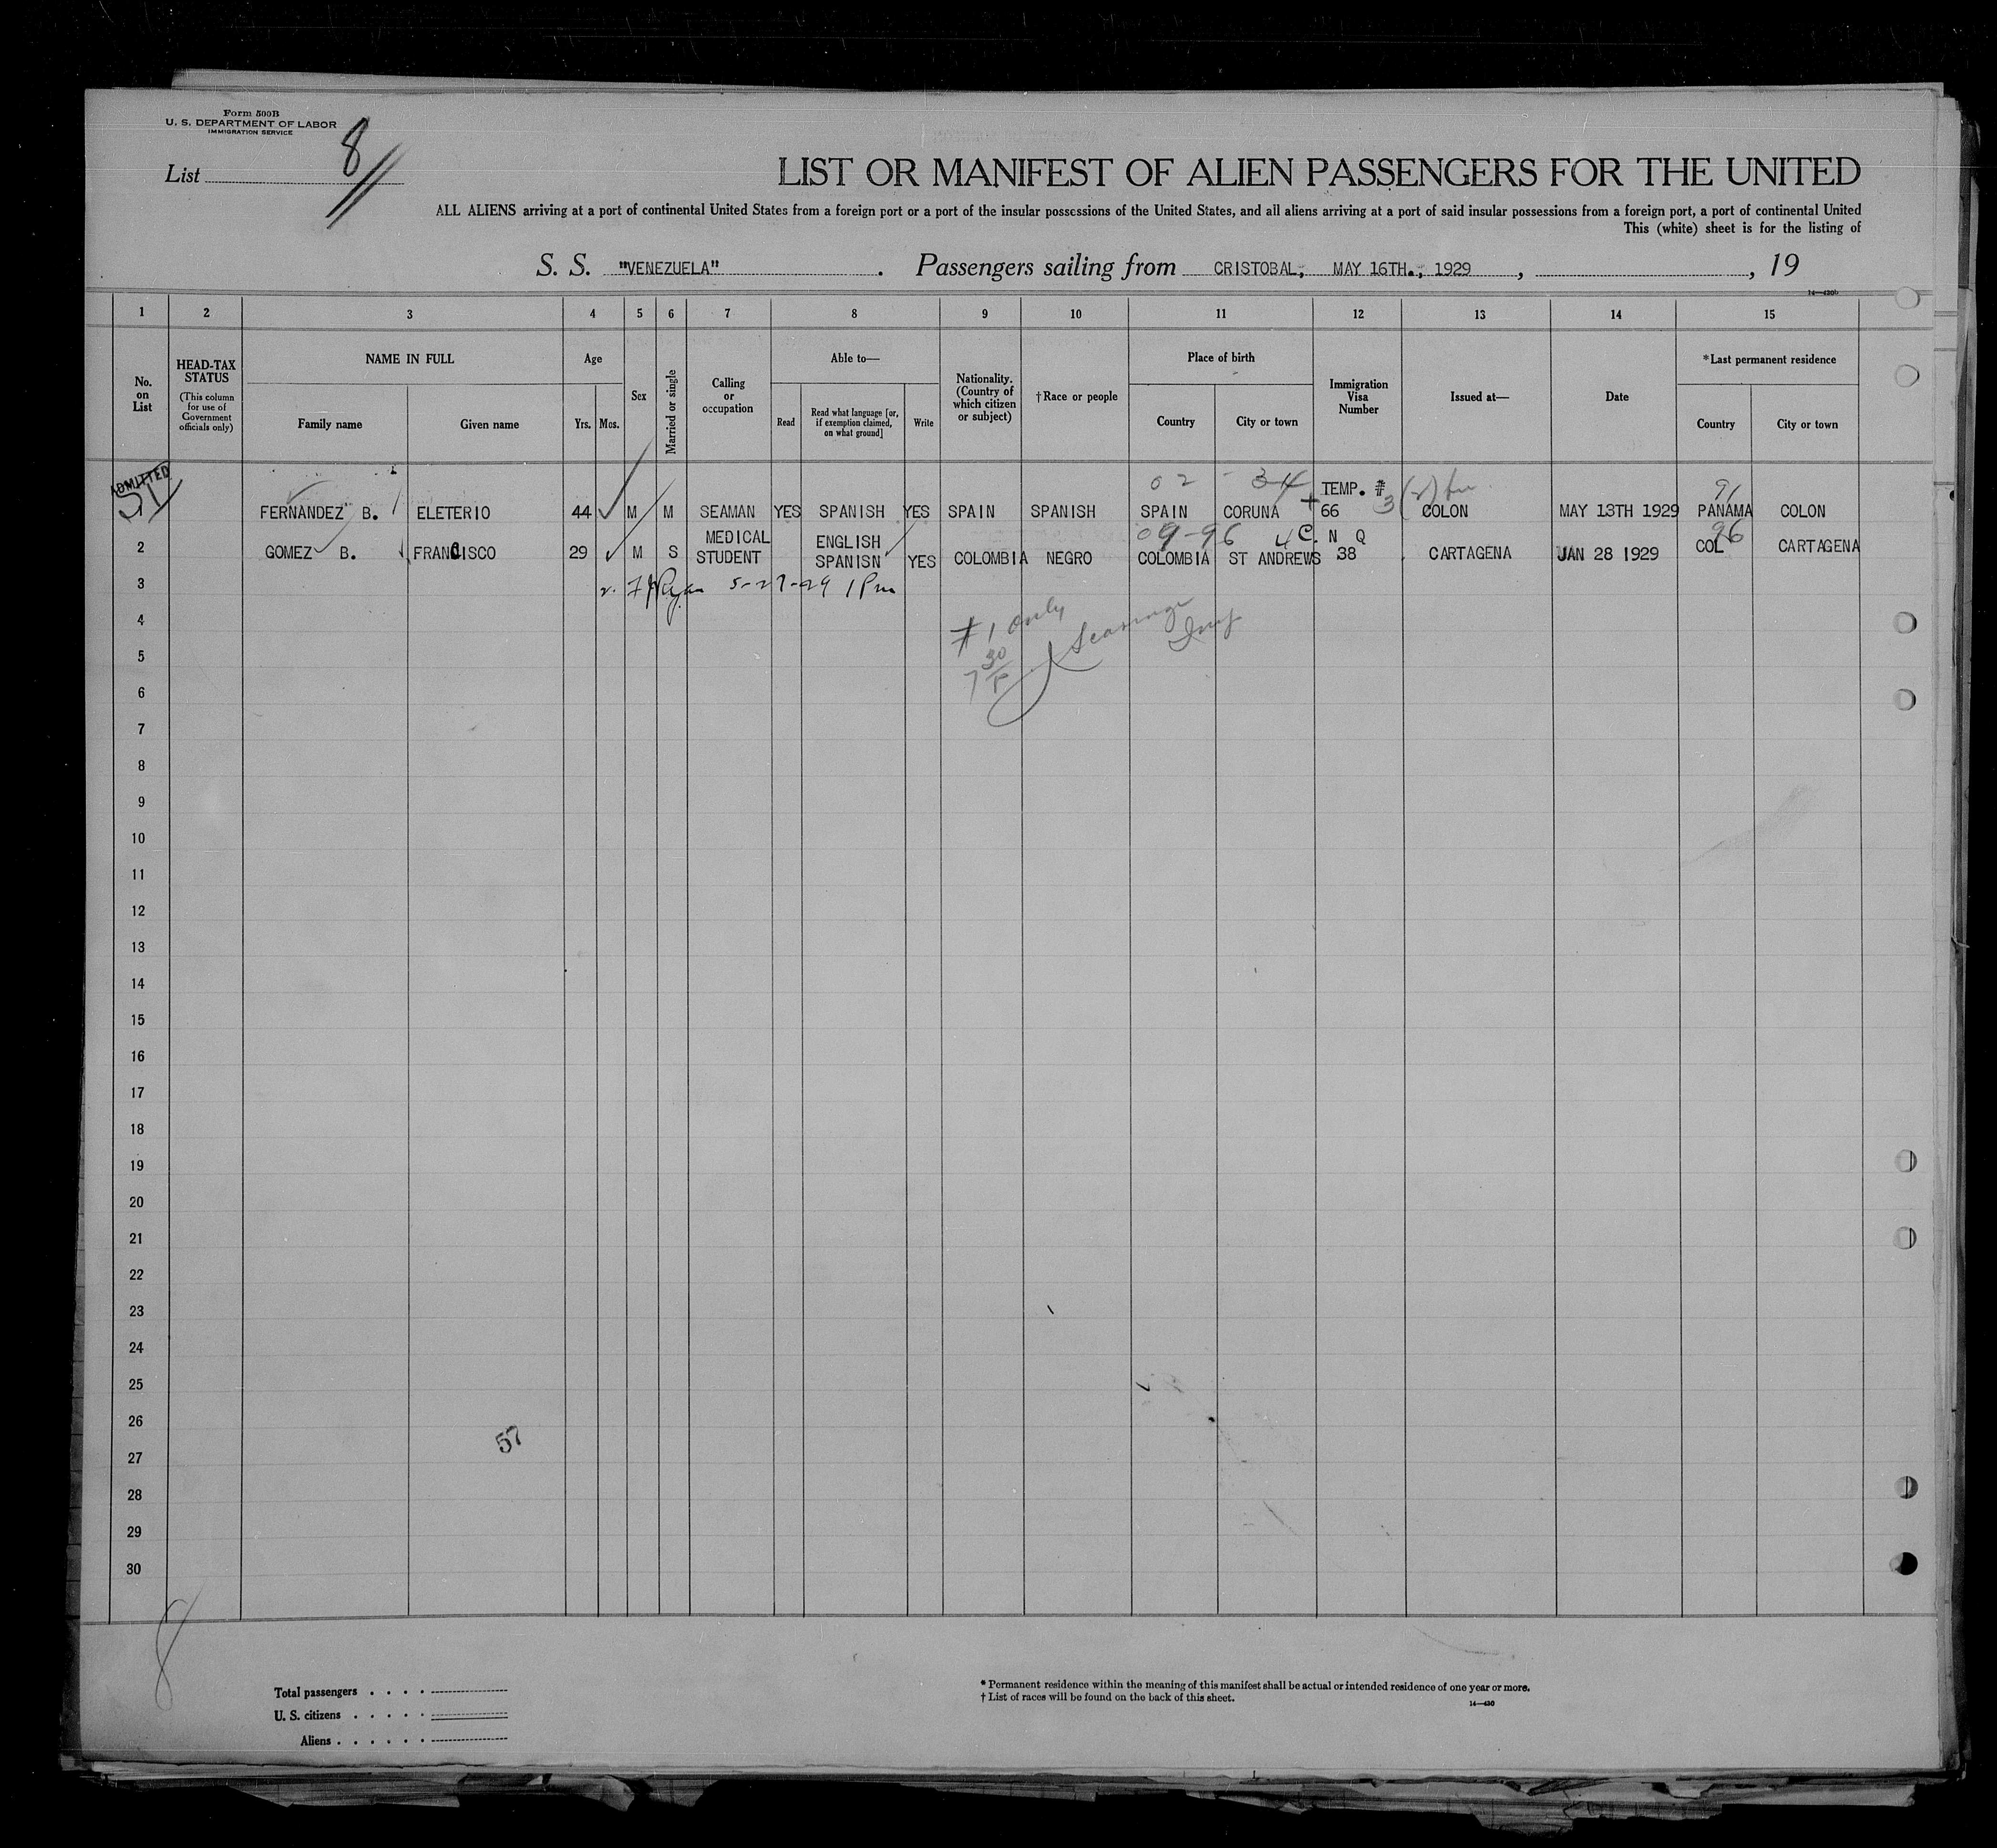 Form 500B
U. S. DEPARTMENT OF LABOR
IMMIGRATION SERVICE
List 8
LIST OR MANIFEST OF ALIEN PASSENGERS FOR THE UNITED
ALL ALIENS arriving at a port of continental United States from a foreign port or a port of the insular possessions of the United States, and all aliens arriving at a port of said insular possessions from a foreign port, a port of continental United
This (white) sheet is for the listing of
S. S. "VENEZUELA" . Passengers sailing from CRISTOBAL, MAY 16TH., 1929 , , 19
14—430b
1 2 3 4 5 6 7 8 9 10 11 12 13 14 15
No. on List
HEAD-TAX STATUS
(This column for use of Government officials only)
NAME IN FULL
Family name Given name
Age
Yrs. Mos.
Sex
Married or single
Calling or occupation
Able to—
Read
Read what language [or, if exemption claimed, on what ground]
Write
Nationality. (Country of which citizen or subject)
†Race or people
Place of birth
Country City or town
Immigration Visa Number
Issued at—
Date
*Last permanent residence
Country City or town
ADMITTED
02 - 34 TEMP. # 91
FERNANDEZ B. ELETERIO 44 M M SEAMAN YES SPANISH YES SPAIN SPANISH SPAIN CORUNA 66 3 COLON MAY 13TH 1929 PANAMA COLON
09-96 4 C. N Q 96
2 GOMEZ B. FRANCISCO 29 M S MEDICAL STUDENT ENGLISH SPANISN YES COLOMBIA NEGRO COLOMBIA ST ANDREWS 38 CARTAGENA JAN 28 1929 COL CARTAGENA
3 Ryan 5-27-29 1 Pm
4 #1 only
5
6
7
8
9
10
11
12
13
14
15
16
17
18
19
20
21
22
23
24
25
26
57
27
28
29
30
8
Total passengers . . . .
U. S. citizens . . . . .
Aliens . . . . . .
* Permanent residence within the meaning of this manifest shall be actual or intended residence of one year or more.
† List of races will be found on the back of this sheet.
14—430